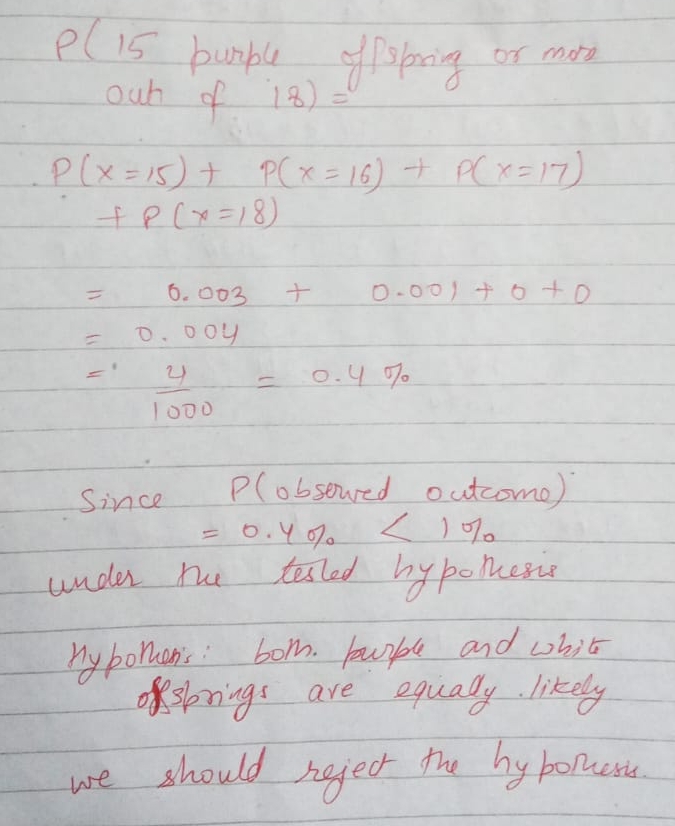 P( 15 purple offspring or more
out of 18) =
P(x=15) + P(x=16) + P(x=17)
+ P(x=18)
= 0.003 + 0.001 + 0 + 0
= 0.004
= 4/1000 = 0.4 %
Since P(observed outcome)
= 0.4% < 1%
under the tested hypothesis
Hypothesis: both purple and white
offsprings are equally likely
we should reject the hypothesis.